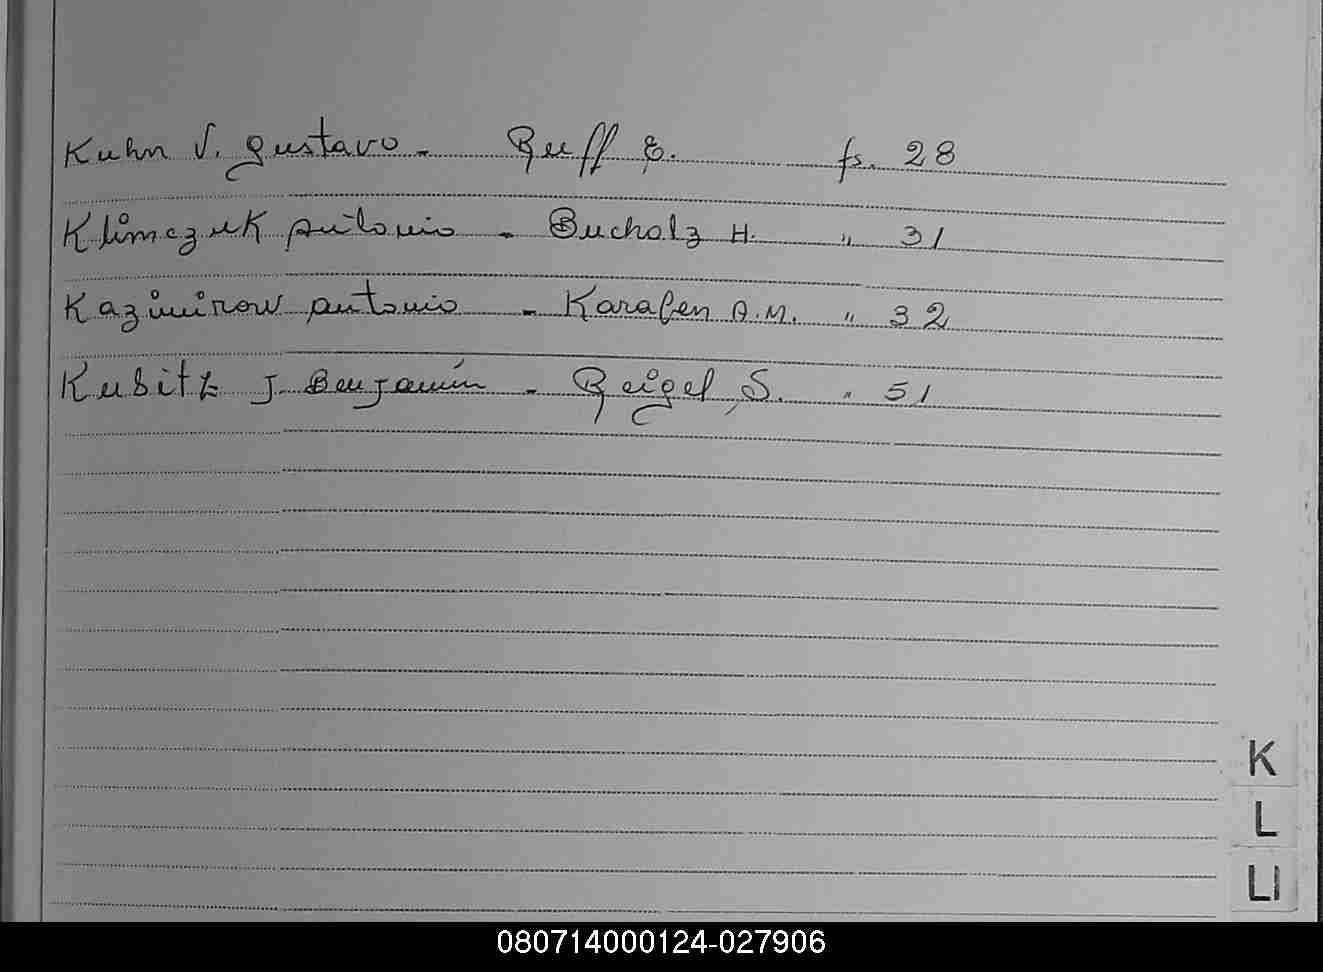 Kuhn V. Gustavo - Ruff E. fs. 28
Klimczuk Antonio - Bucholz H. " 31
Kazimirow Antonio - Karaben A.M. " 32
Kubitz J. Benjamín - Reigel S. " 51
K
L
Ll
080714000124-027906